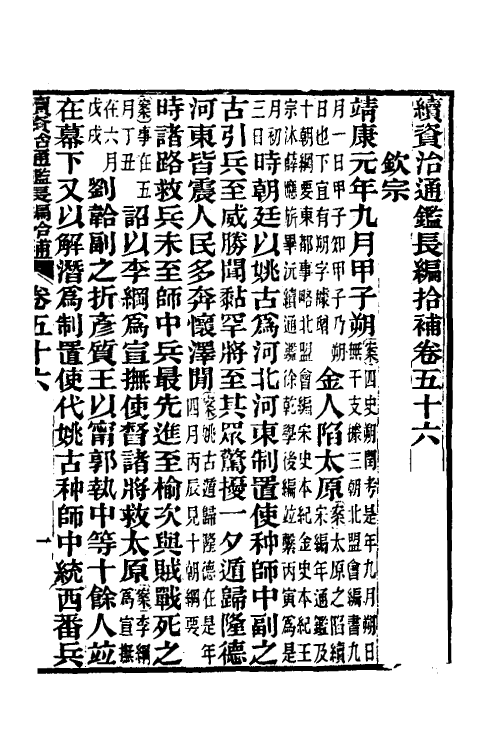 續資治通鑑長編拾補卷五十六
欽宗
靖康元年九月甲子朔案四史朔閏考是年九月朔日
無干支據三朝北盟會編書九
月一日甲子知甲子乃朔
日也下宜有朔字據增金人陷太原案太原之陷續
宋編年通鑑及
十朝綱要東都事略北盟會編宋史本紀金史本紀王
宗沐薛應旂畢沅續通鑑徐乾學後編竝繫丙寅爲是
月初
三日時朝廷以姚古爲河北河東制置使种師中副之
古引兵至威勝聞黏罕將至其眾驚擾一夕遁歸隆德
河東皆震人民多奔懷澤間案姚古遁歸隆德在是年
四月丙辰見十朝綱要
時諸路救兵未至師中兵最先進至榆次與賊戰死之
案事在五
月丁丑詔以李綱爲宣撫使督諸將救太原案李綱
爲宣撫
在六月
戊戌劉韐副之折彥質王以甯郭執中等十餘人竝
在幕下又以解潛爲制置使代姚古种師中統西番兵
續資治通鑑長編拾補
卷五十六
一